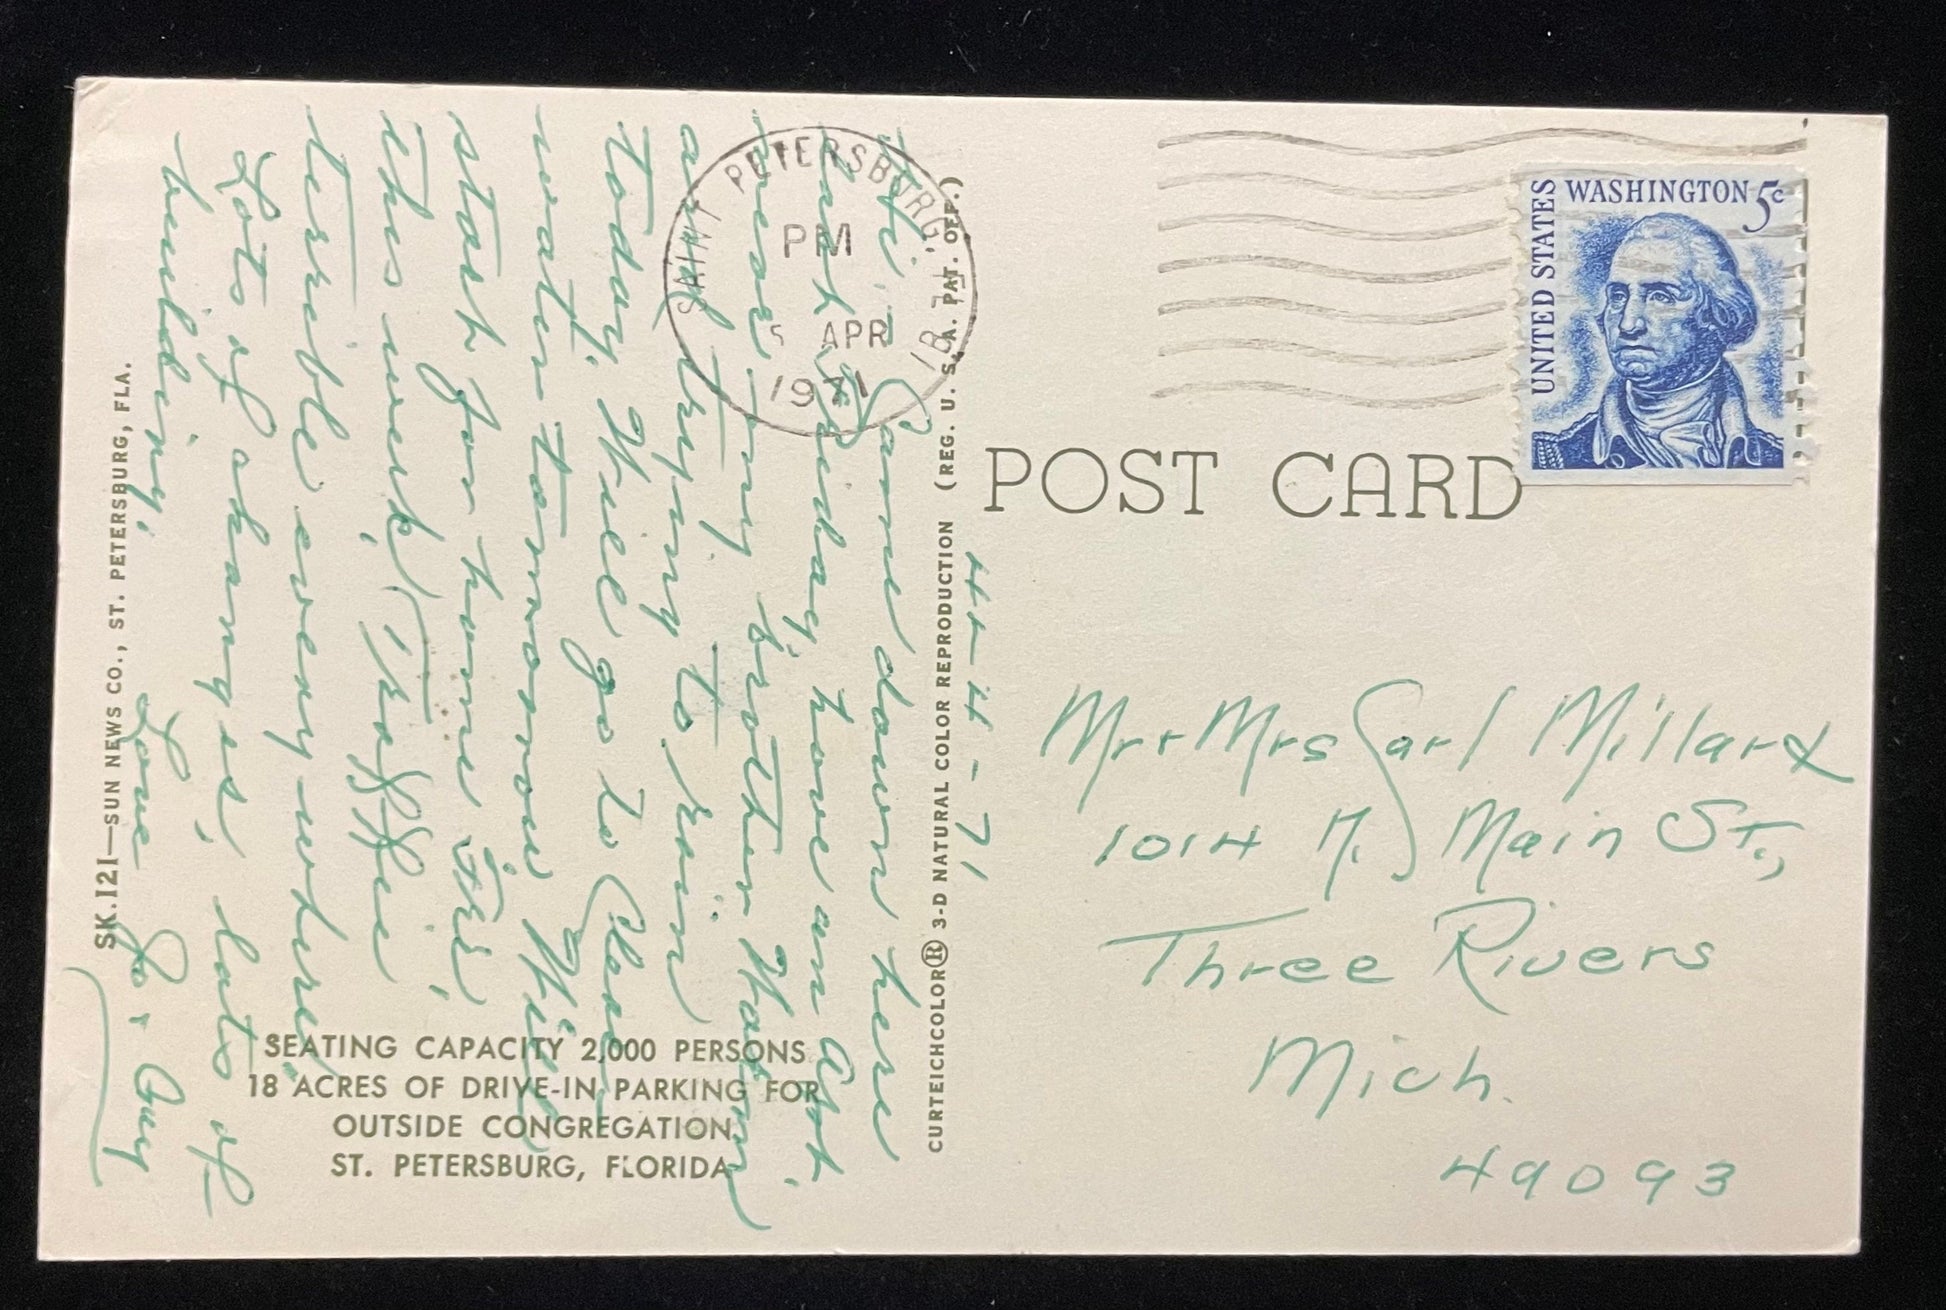 4-4-71
Hi: Came down here
last Friday, have an apt.
near my brother Watson
and trying to rain
today. Will go to Clear-
water tomorrow. Will
start for home Fri.
this week. Traffic
terrible everywhere.
Lots of changes, lots of
building.
Love Jo & Guy
SEATING CAPACITY 2,000 PERSONS
18 ACRES OF DRIVE-IN PARKING FOR
OUTSIDE CONGREGATION.
ST. PETERSBURG, FLORIDA
SK.121—SUN NEWS CO., ST. PETERSBURG, FLA.
CURTEICHCOLOR® 3-D NATURAL COLOR REPRODUCTION (REG. U. S. A. PAT. OFF.)
SAINT PETERSBURG, FL
PM
5 APR
1971
POST CARD
UNITED STATES
WASHINGTON 5c
Mr + Mrs Carl Millard
1014 N. Main St.,
Three Rivers
Mich.
49093